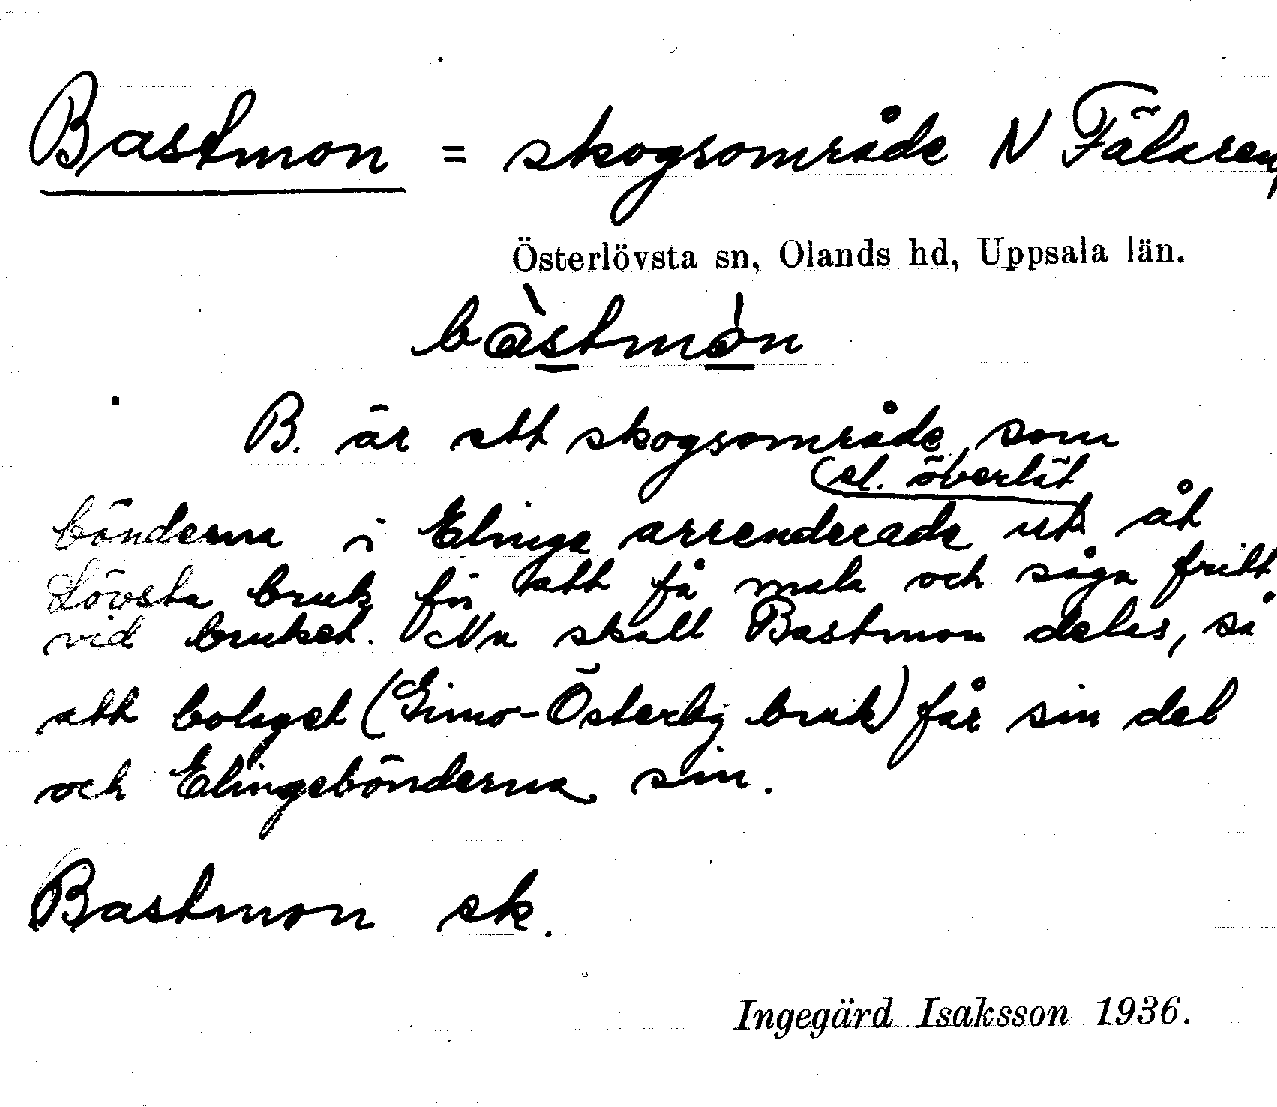 Bastmon = skogsområde N Fälaren,
Österlövsta sn, Olands hd, Uppsala län.
bàstmòn
B. är ett skogsområde, som
(el. överlät
bönderna i Elinge arrenderade ut åt
Lövsta bruk för att få mala och såga fritt
vid bruket. Nu skall Bastmon delas, så
att bolaget (Gimo-Österby bruk) får sin del
och Elingebönderna sin.
Bastmon sk.
Ingegärd Isaksson 1936.